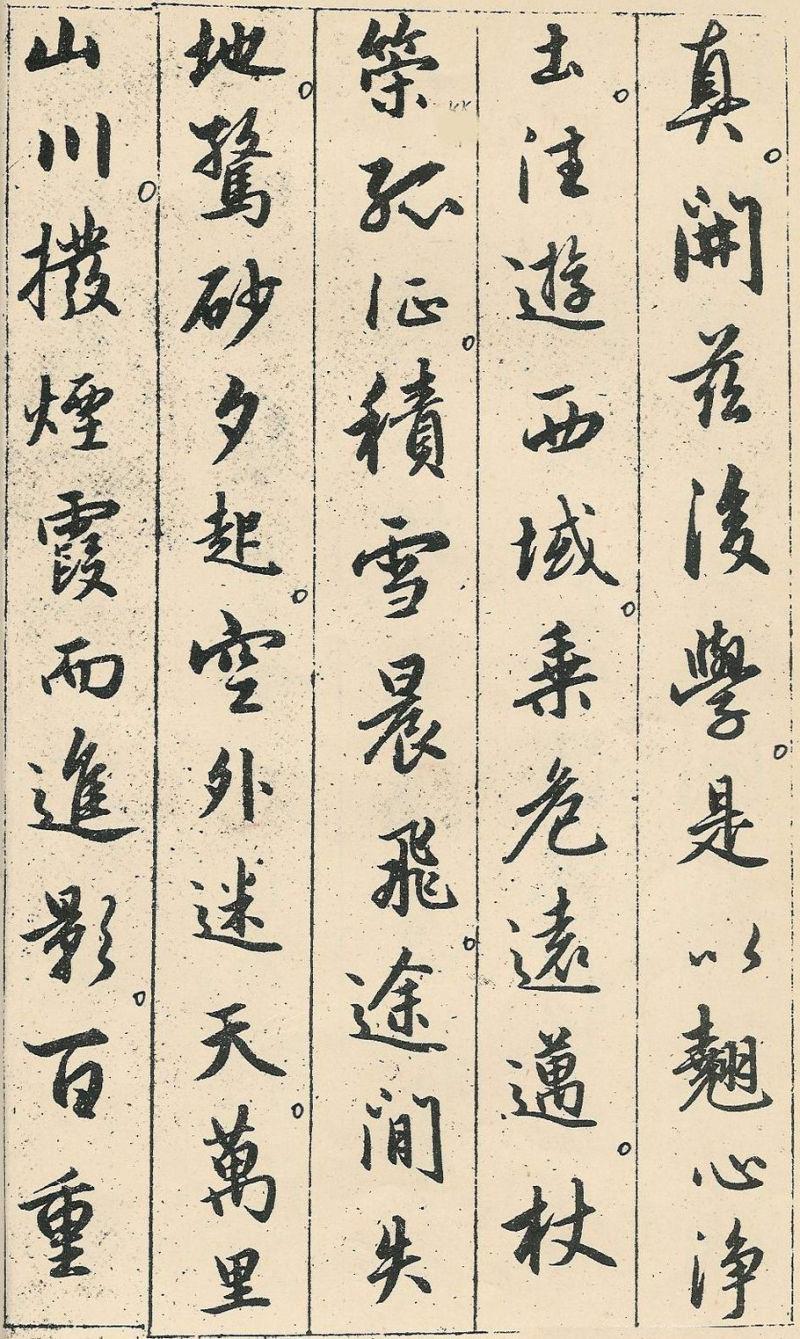 真。開茲後學。是以翹心淨
土。注遊西域。乗危遠邁。杖
策孤征。積雪晨飛。途間失
地。驚砂夕起。空外迷天。萬里
山川。撥煙霞而進影。百重